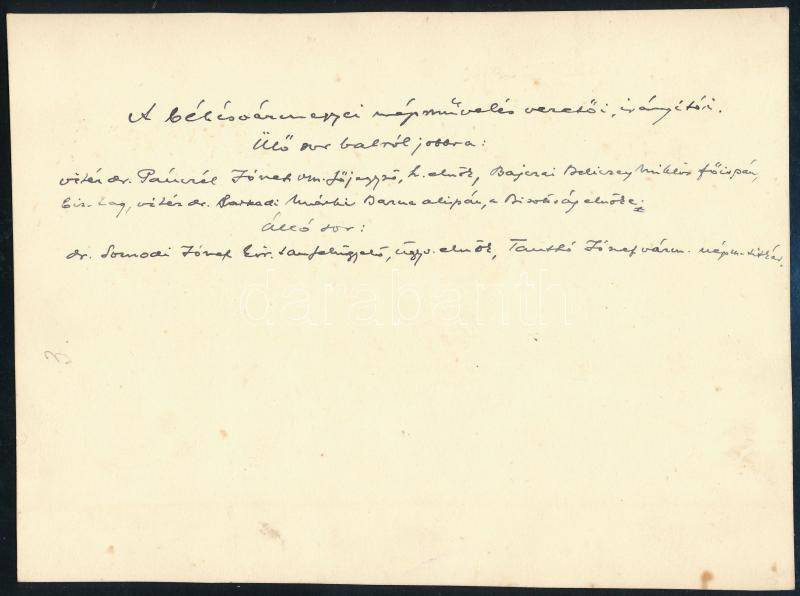 A békésvármegyei népművelés vezetői, irányítói.
Ülő sor balról jobbra:
vitéz dr. Pánczél József vm. főjegyző, h. elnök, Bajcsai Beliczey Miklós főispán,
biz. tag, vitéz dr. Márki Barna alispán, a Bizottság elnöke;
Álló sor:
dr. Somodi József kir. tanfelügyelő, ügyv. elnök, Tantó József várm. népm. titkár.
darabanth